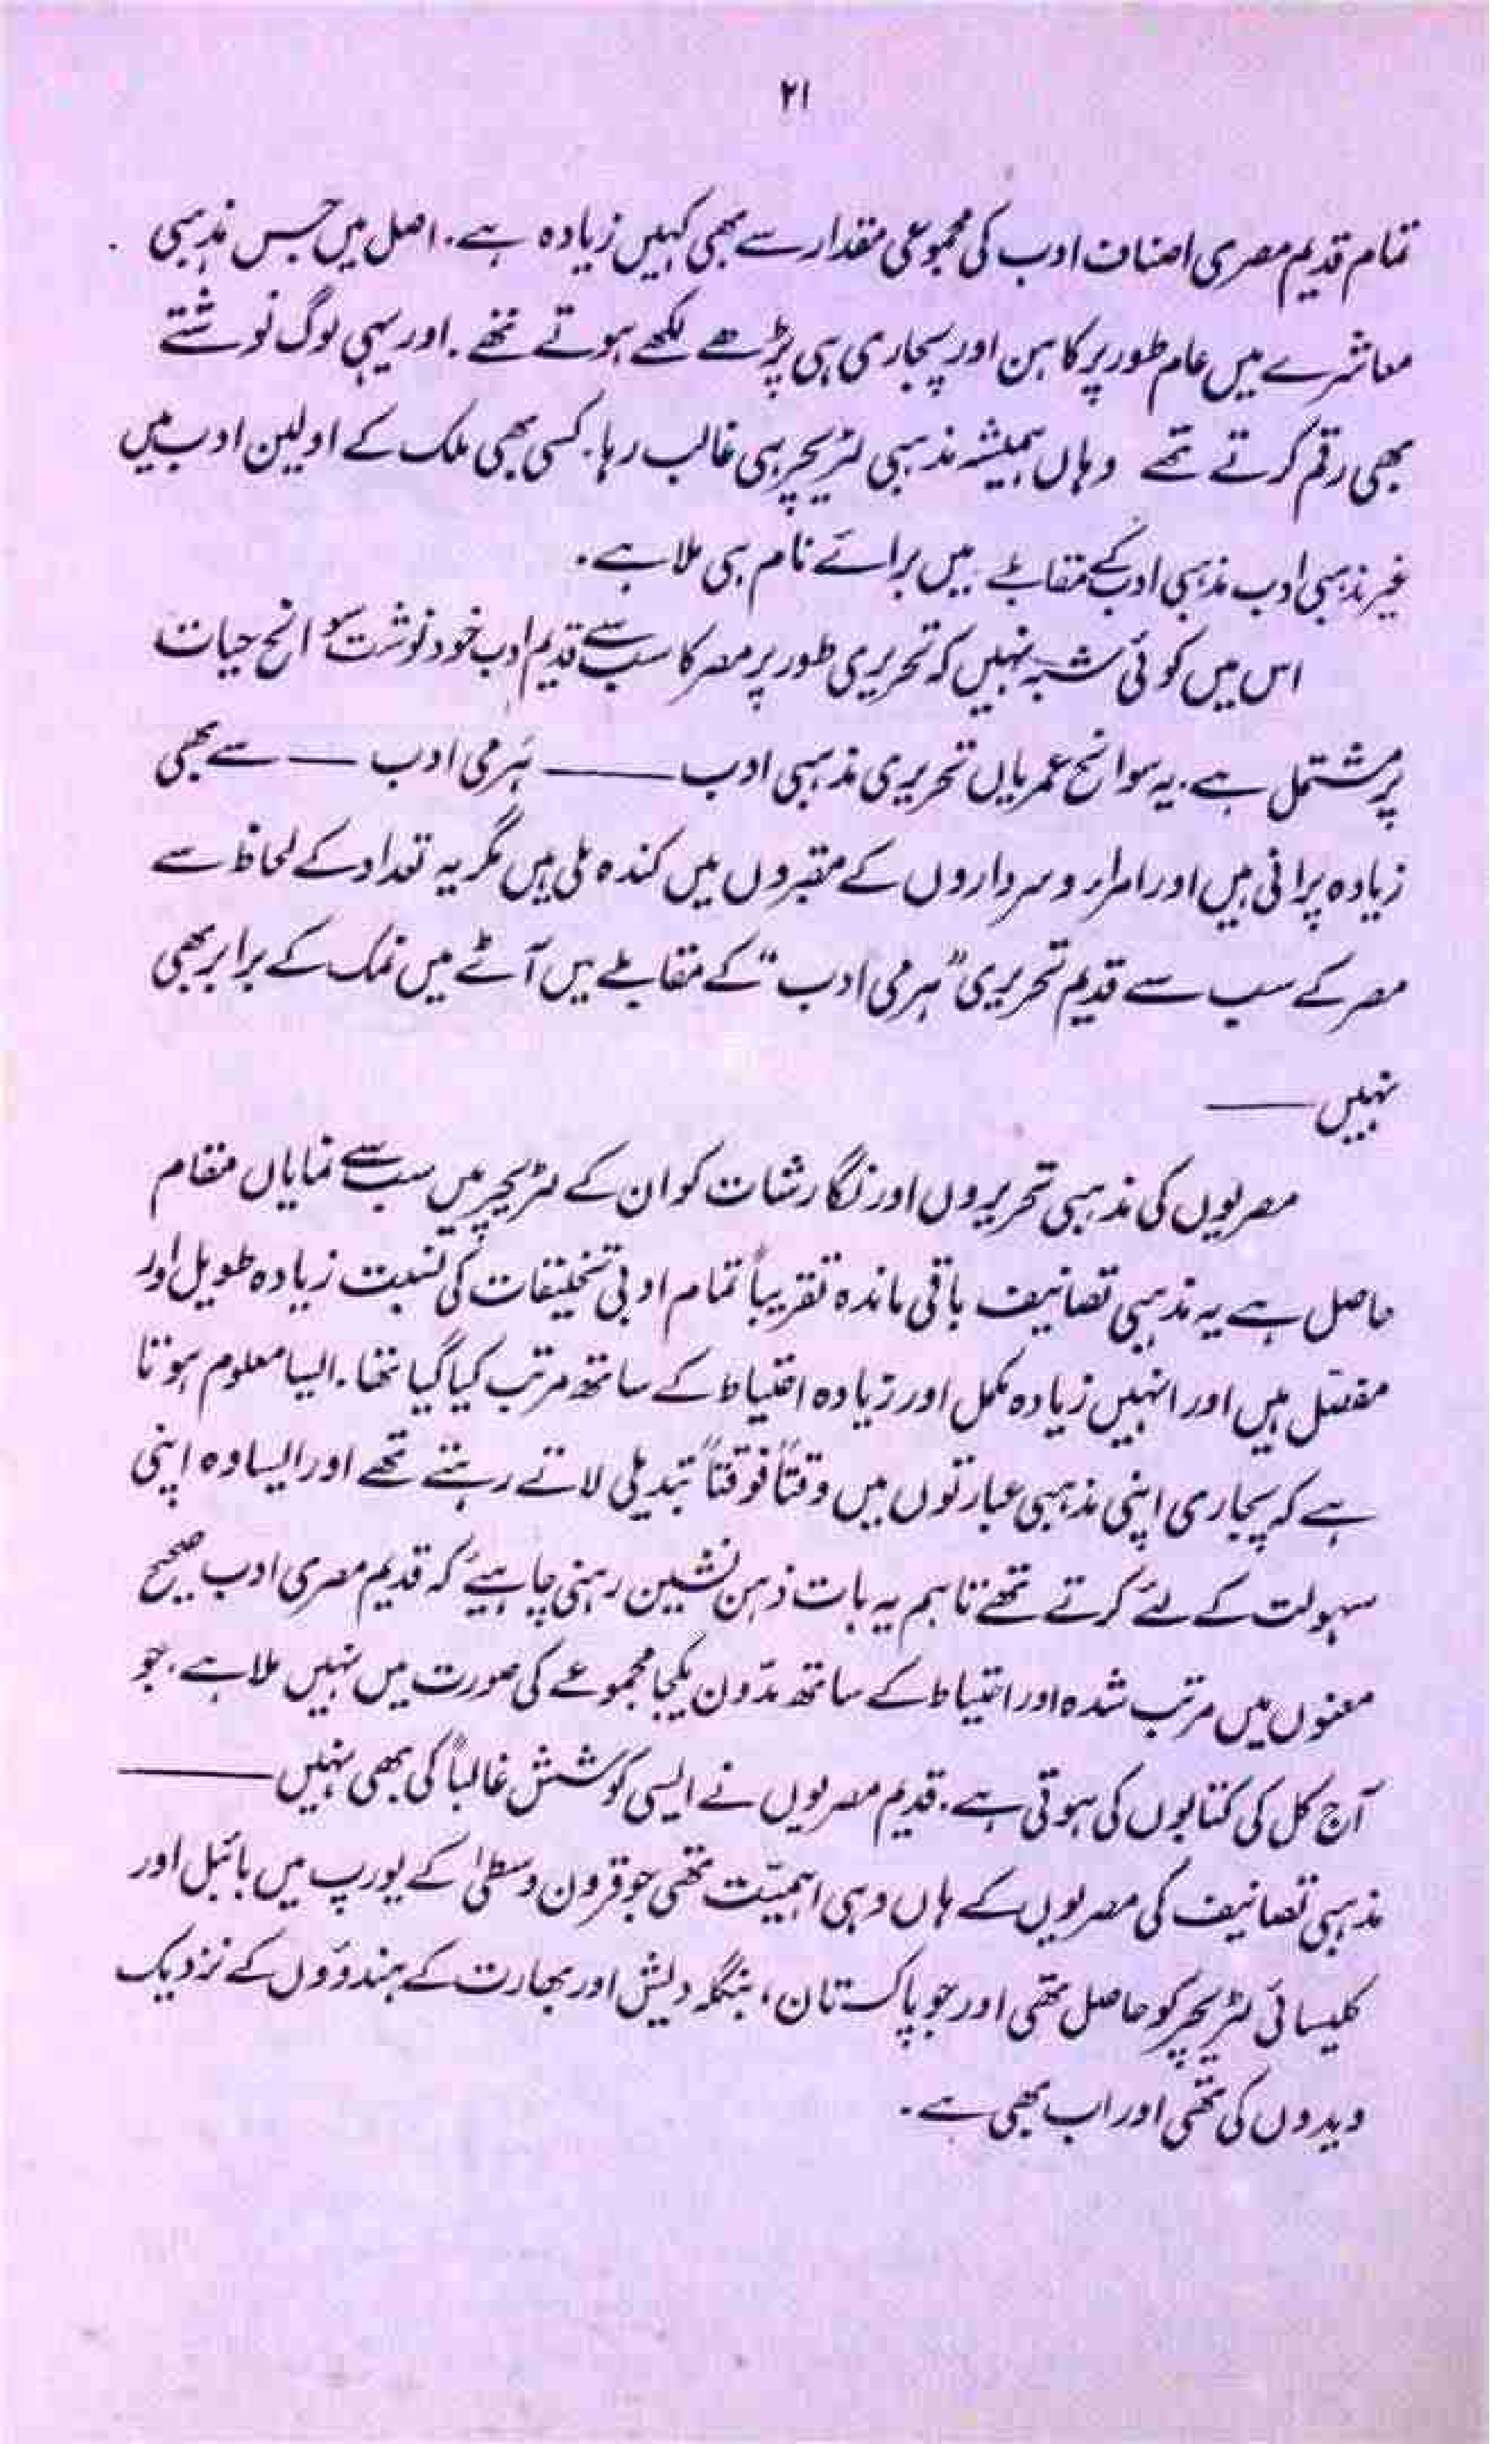 ۲۱
تمام قدیم مصری اصناف ادب کی مجموعی مقدار سے بھی کہیں زیادہ ہے. اصل میں جس مذہبی
معاشرے میں عام طور پر کاہن اور پجاری ہی پڑھے لکھے ہوتے تھے. اور یہی لوگ نوشتے
بھی رقم کرتے تھے وہاں ہمیشہ مذہبی لٹریچر ہی غالب رہا. کسی بھی ملک کے اولین ادب میں
غیر مذہبی ادب مذہبی ادب کے مقابلے میں برائے نام ہی ملا ہے.
اس میں کوئی شبہ نہیں کہ تحریری طور پر مصر کا سب سے قدیم ادب خود نوشت سوانح حیات
پر مشتمل ہے. یہ سوانح عمریاں تحریری مذہبی ادب —— ہَرمی ادب — سے بھی
زیادہ پرانی ہیں اور امراء و سرداروں کے مقبروں میں کندہ ملی ہیں مگر یہ تعداد کے لحاظ سے
مصر کے سب سے قدیم تحریری "ہرمی ادب" کے مقابلے میں آٹے میں نمک کے برابر بھی
نہیں ——
مصریوں کی مذہبی تحریروں اور نگارشات کو ان کے لٹریچر میں سب سے نمایاں مقام
حاصل ہے یہ مذہبی تصانیف باقی ماندہ تقریباً تمام ادبی تخلیقات کی نسبت زیادہ طویل اور
مفصّل ہیں اور انہیں زیادہ مکمل اور زیادہ احتیاط کے ساتھ مرتب کیا گیا تھا. ایسا معلوم ہوتا
ہے کہ پجاری اپنی مذہبی عبارتوں میں وقتاً فوقتاً تبدیلی لاتے رہتے تھے اور ایسا وہ اپنی
سہولت کے لئے کرتے تھے تاہم یہ بات ذہن نشین رہنی چاہیئے کہ قدیم مصری ادب صحیح
معنوں میں مرتب شدہ اور احتیاط کے ساتھ مدّون یکجا مجموعے کی صورت میں نہیں ملا ہے، جو
آج کل کی کتابوں کی ہوتی ہے. قدیم مصریوں نے ایسی کوشش غالباً کی بھی نہیں ——
مذہبی تصانیف کی مصریوں کے ہاں وہی اہمیّت تھی جو قرون وسطیٰ کے یورپ میں بائبل اور
کلیسائی لٹریچر کو حاصل تھی اور جو پاکستان، بنگلہ دلیش اور بھارت کے ہندوؤں کے نزدیک
ویدوں کی تھی اور اب بھی ہے.